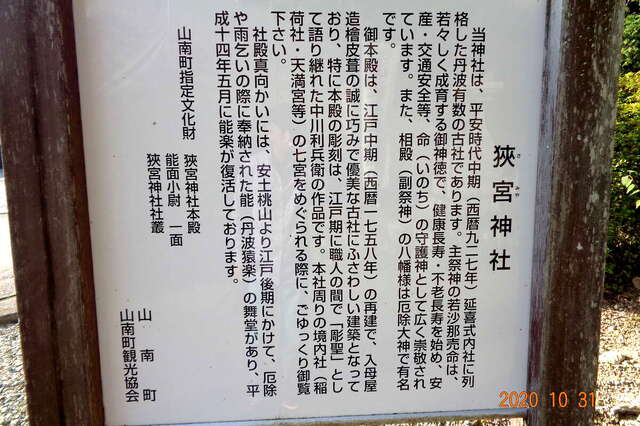 狹宮神社
さ みや
当神社は、平安時代中期（西暦九二七年）延喜式内社に列
格した丹波有数の古社であります。主祭神の若沙那売命は、
若々しく成育する御神徳で、健康長寿・不老長寿を始め、安
産・交通安全等、命（いのち）の守護神として広く崇敬され
ています。また、相殿（副祭神）の八幡様は厄除大神で有名
です。
御本殿は、江戸中期（西暦一七五八年）の再建で、入母屋
造檜皮葺の誠に巧みで優美な古社にふさわしい建築となって
おり、特に本殿の彫刻は、江戸期に職人の間で「彫聖」とし
て語り継れた中川利兵衛の作品です。本社周りの境内社（稲
荷社・天満宮等）の七宮をめぐられる際に、ごゆっくり御覧
下さい。
社殿真向かいには、安土桃山より江戸後期にかけて、厄除
や雨乞いの際に奉納された能（丹波猿楽）の舞堂があり、平
成十四年五月に能楽が復活しております。
山南町指定文化財 狹宮神社本殿
能面小尉 一面
狹宮神社社叢
山南町
山南町観光協会
2020 10 31